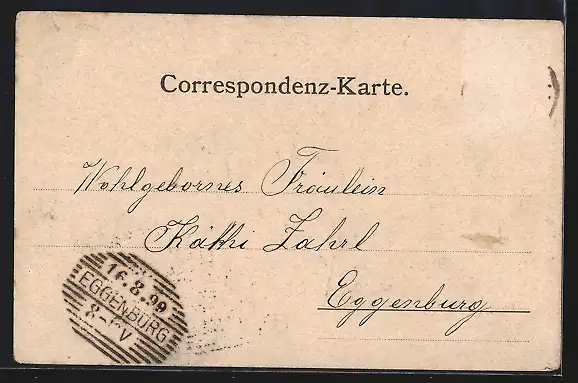 Correspondenz-Karte.
Wohlgebornes Fräulein
Kathi Zahrl
Eggenburg
16.8.99
EGGENBURG
8-